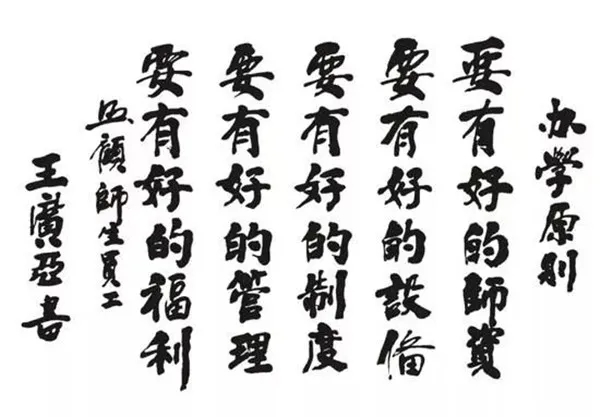 办學原則
要有好的師資
要有好的設備
要有好的制度
要有好的管理
要有好的福利
照顧師生員工
王廣亞書